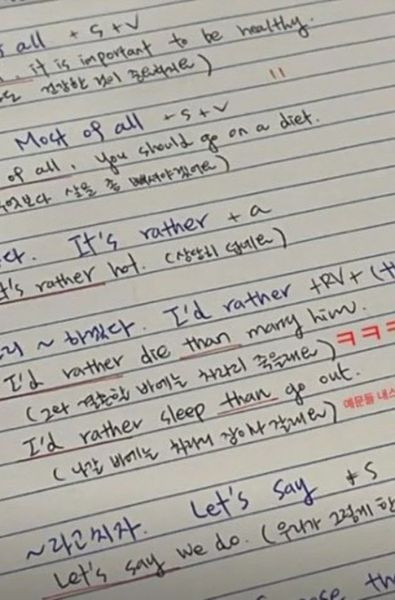 all + S + V
it is important to be healthy.
건강한 것이 중요하지요)
Most of all + S + V
of all, you should go on a diet.
살을 좀 빼셔야겠어요)
It's rather + a
It's rather hot. (상당히 덥네요)
~ 하겠다. I'd rather + RV + (th
I'd rather die than marry him.
(그와 결혼할 바에는 차라리 죽을래요) ㅋㅋㅋ
I'd rather sleep than go out.
(나갈 바에는 차라리 잠이나 잘래요) 예문들 내스
~라고 치자. Let's say + S
Let's say we do. (우리가 그렇게 한